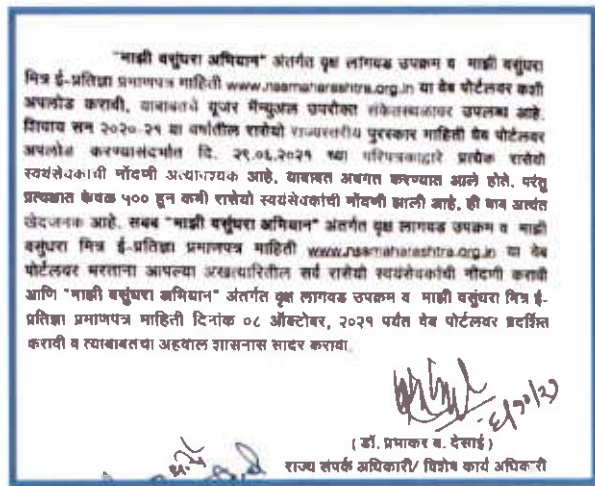 "माझी वसुंधरा अभियान" अंतर्गत वृक्ष लागवड उपक्रम व माझी वसुंधरा
मित्र ई-प्रतिज्ञा प्रमाणपत्र माहिती www.nssmaharashtra.org.in या वेब पोर्टलवर कशी
अपलोड करावी, याबाबतचे यूजर मॅन्युअल उपरोक्त संकेतस्थळावर उपलब्ध आहे.
शिवाय सन २०२०-२१ या वर्षातील रासेयो राज्यस्तरीय पुरस्कार माहिती वेब पोर्टलवर
अपलोड करण्यासंदर्भात दि. २९.०६.२०२१ च्या परिपत्रकाद्वारे प्रत्येक रासेयो
स्वयंसेवकाची नोंदणी अत्यावश्यक आहे, याबाबत अवगत करण्यात आले होते. परंतु
प्रत्यक्षात केवळ ५०० हून कमी रासेयो स्वयंसेवकांची नोंदणी झाली आहे, ही बाब अत्यंत
खेदजनक आहे. सबब "माझी वसुंधरा अभियान" अंतर्गत वृक्ष लागवड उपक्रम व माझी
वसुंधरा मित्र ई-प्रतिज्ञा प्रमाणपत्र माहिती www.nssmaharashtra.org.in या वेब
पोर्टलवर भरताना आपल्या अखत्यारितील सर्व रासेयो स्वयंसेवकांची नोंदणी करावी
आणि "माझी वसुंधरा अभियान" अंतर्गत वृक्ष लागवड उपक्रम व माझी वसुंधरा मित्र ई-
प्रतिज्ञा प्रमाणपत्र माहिती दिनांक ०८ ऑक्टोबर, २०२१ पर्यंत वेब पोर्टलवर प्रदर्शित
करावी व त्याबाबतचा अहवाल शासनास सादर करावा.
(डॉ. प्रभाकर ब. देसाई)
राज्य संपर्क अधिकारी/ विशेष कार्य अधिकारी